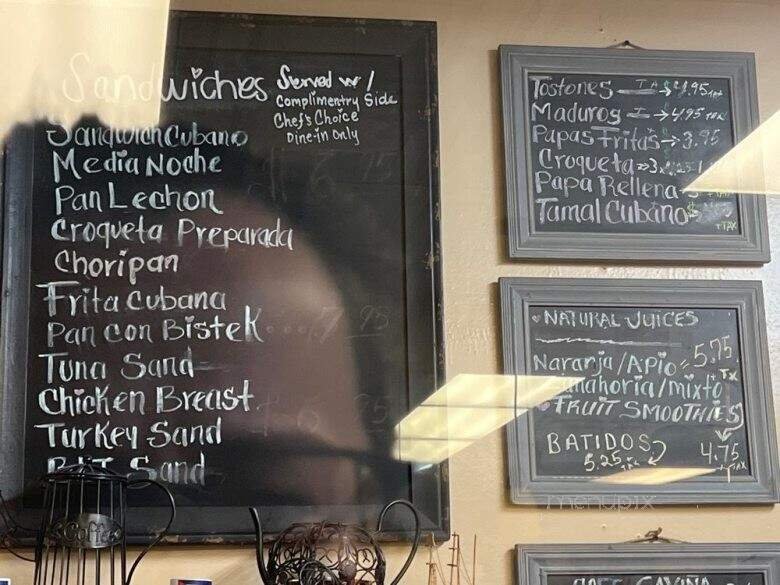 Sandwiches
Served w/
Complimentry Side
Chef's Choice
Dine-in Only
Sandwich Cubano
Media Noche
Pan Lechon
Croqueta Preparada
Choripan
Frita Cubana
Pan con Bistek...7 95
Tuna Sand
Chicken Breast
Turkey Sand
BLT Sand
Coffee
Tostones → $4.95 TAX
Maduros → 4.95 TAX
Papas Fritas → 3.95
Croqueta
Papa Rellena
Tamal Cubano
+TAX
• NATURAL JUICES
Naranja/Apio 5.75
+TX
Zanahoria/mixto
• FRUIT SMOOTHIES
BATIDOS
5.25
4.75
+TAX
menupix